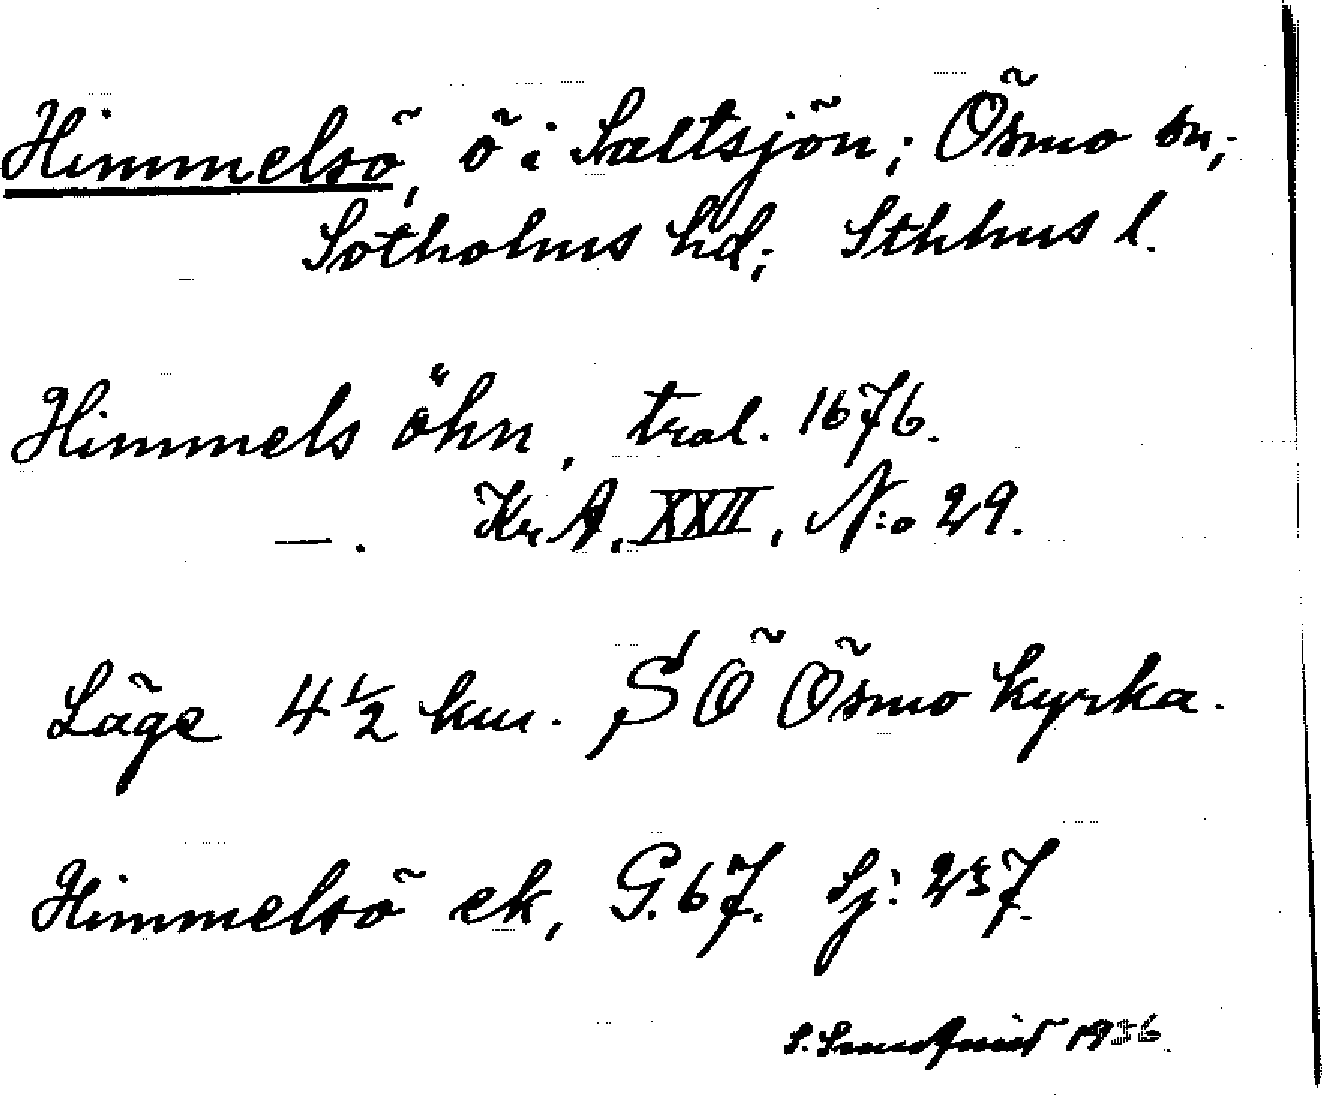 Himmelsö, ö i Saltsjön; Ösmo sn,;
Sotholms hd; Sthlms l.
Himmels öhn, tral. 1676.
—. Kr A, XXII, N:o 29.
Läge 4 1/2 km. SÖ Ösmo kyrka.
Himmelsö ek, G. 67. Sj: 237.
1936